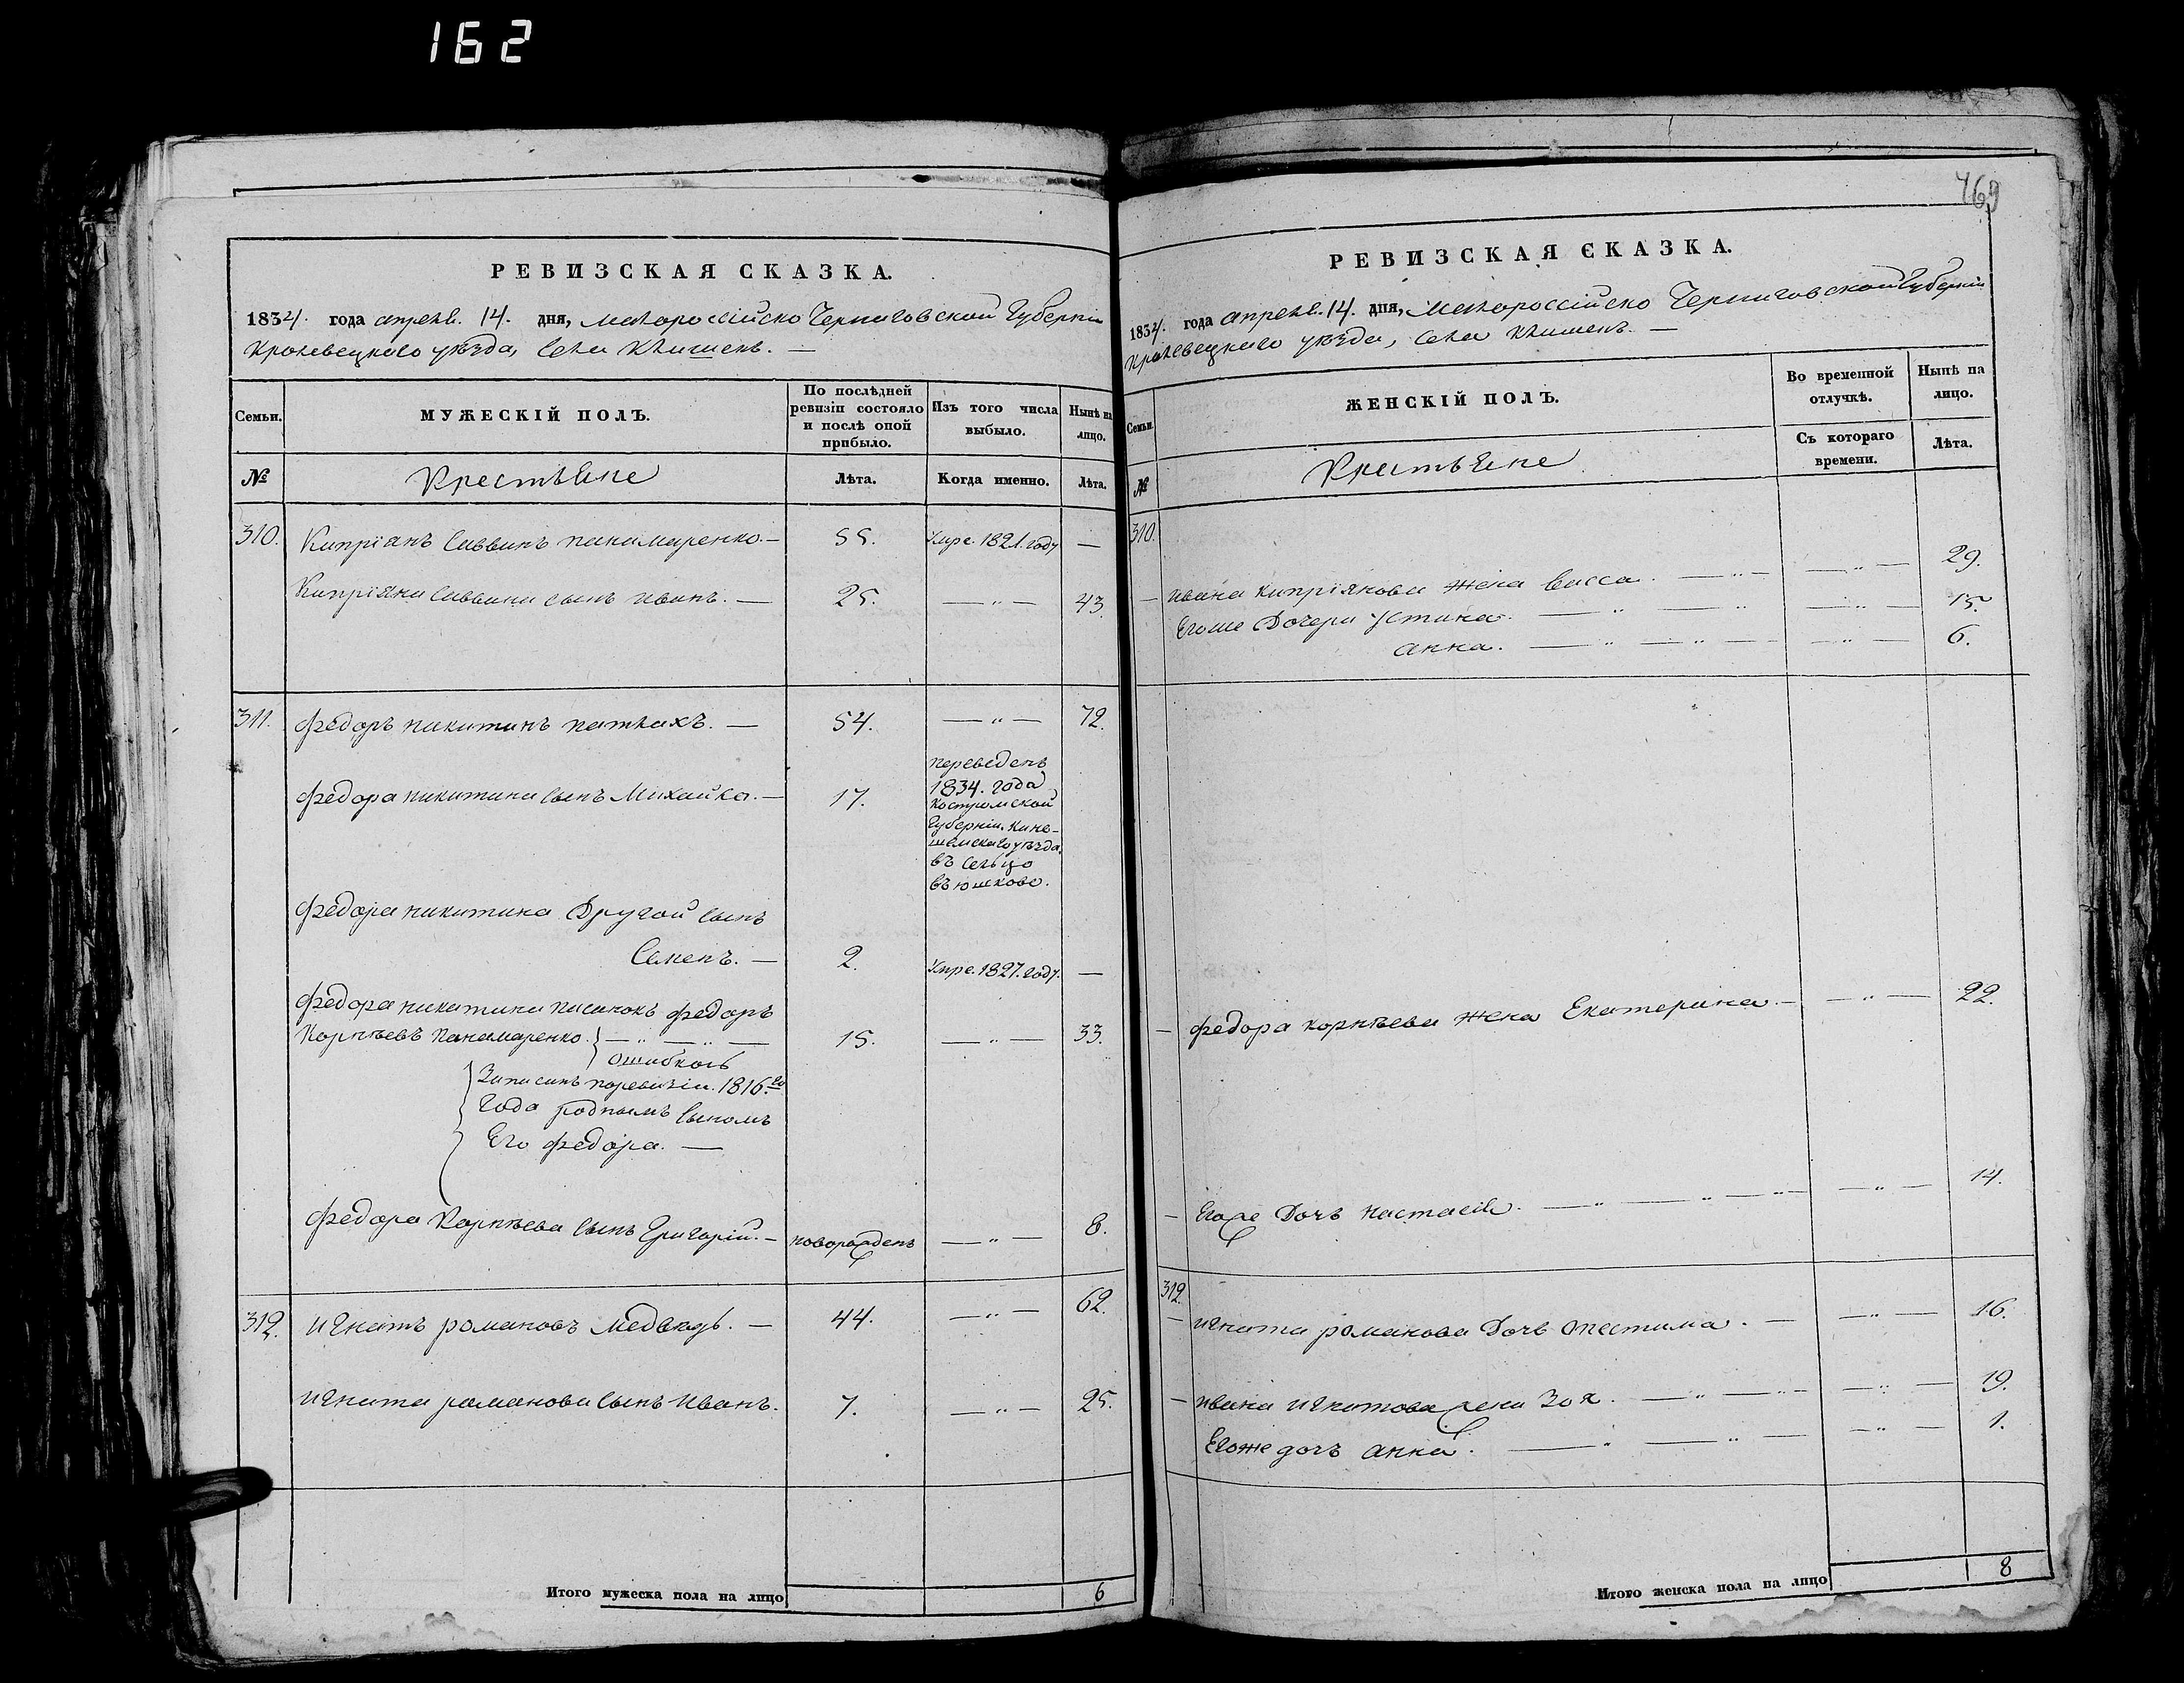 162
РЕВИЗСКАЯ СКАЗКА.
1834. года апреля. 14. дня, Малороссійско Черниговской Губерніи
Кролевецкаго уѣзда, Села Клишекъ. —
Семьи.
МУЖЕСКІЙ ПОЛЪ.
По послѣдней ревизіи состояло и послѣ оной прибыло.
Изъ того числа выбыло.
Нынѣ на лицо.
№
Крестьяне
Лѣта.
Когда именно.
Лѣта.
310. Кипріанъ Саввинъ панамаренко. — 55. Умре. 1821. году —
Кипріяна Саввина сынъ иванъ. — 25. — " — 43.
311. федоръ никитинъ патлахъ. — 54. — " — 72.
федора никитина сынъ Михайла. — 17.
переведенъ
1834. года
Костромской
Губерніи. Кине-
шемскаго уѣзда.
въ сельцо
въюшково.
федора никитина Другой сынъ
Семенъ. — 2. Умре. 1827. году. —
федора никитина пасынокъ федоръ
Корнѣевъ Панамаренко. — " — " — 15. — " — 33.
ошибкою
Записанъ поревизіи. 1816.го
года роднымъ сыномъ
Его федора. —
федора Корнѣева сынъ Григорій. — новорожденъ — " — 8.
312. игнатъ романовъ Медведь. — 44. — " — 62.
игната романова сынъ иванъ. 7. — " — 25.
Итого мужеска пола на лицо 6
469
РЕВИЗСКАЯ СКАЗКА.
1834. года апреля. 14. дня, Малороссійско Черниговской Губерніи
Кролевецкаго уѣзда, Села Клишекъ. —
Семьи.
ЖЕНСКІЙ ПОЛЪ.
Во временной отлучкѣ.
Нынѣ на лицо.
Съ котораго времени.
Лѣта.
№
Крестьяне
310.
— ивана Кипріянова жена Васса. — " — — " — 29.
Егоже Дочери Устина. — " — " — " — 15.
анна. — " — " — — " — 6.
— федора корнѣева жена Екатерина. — — " — 22.
— Егоже Дочь настасія. — " — " — " — — " — 14.
312.
— игната романова Дочь Фестима. — — " — 16.
— ивана игнатова жена Зоя. — " — " — — " — 19.
Егоже дочь анна. — " — " — — " — 1.
Итого женска пола на лицо 8